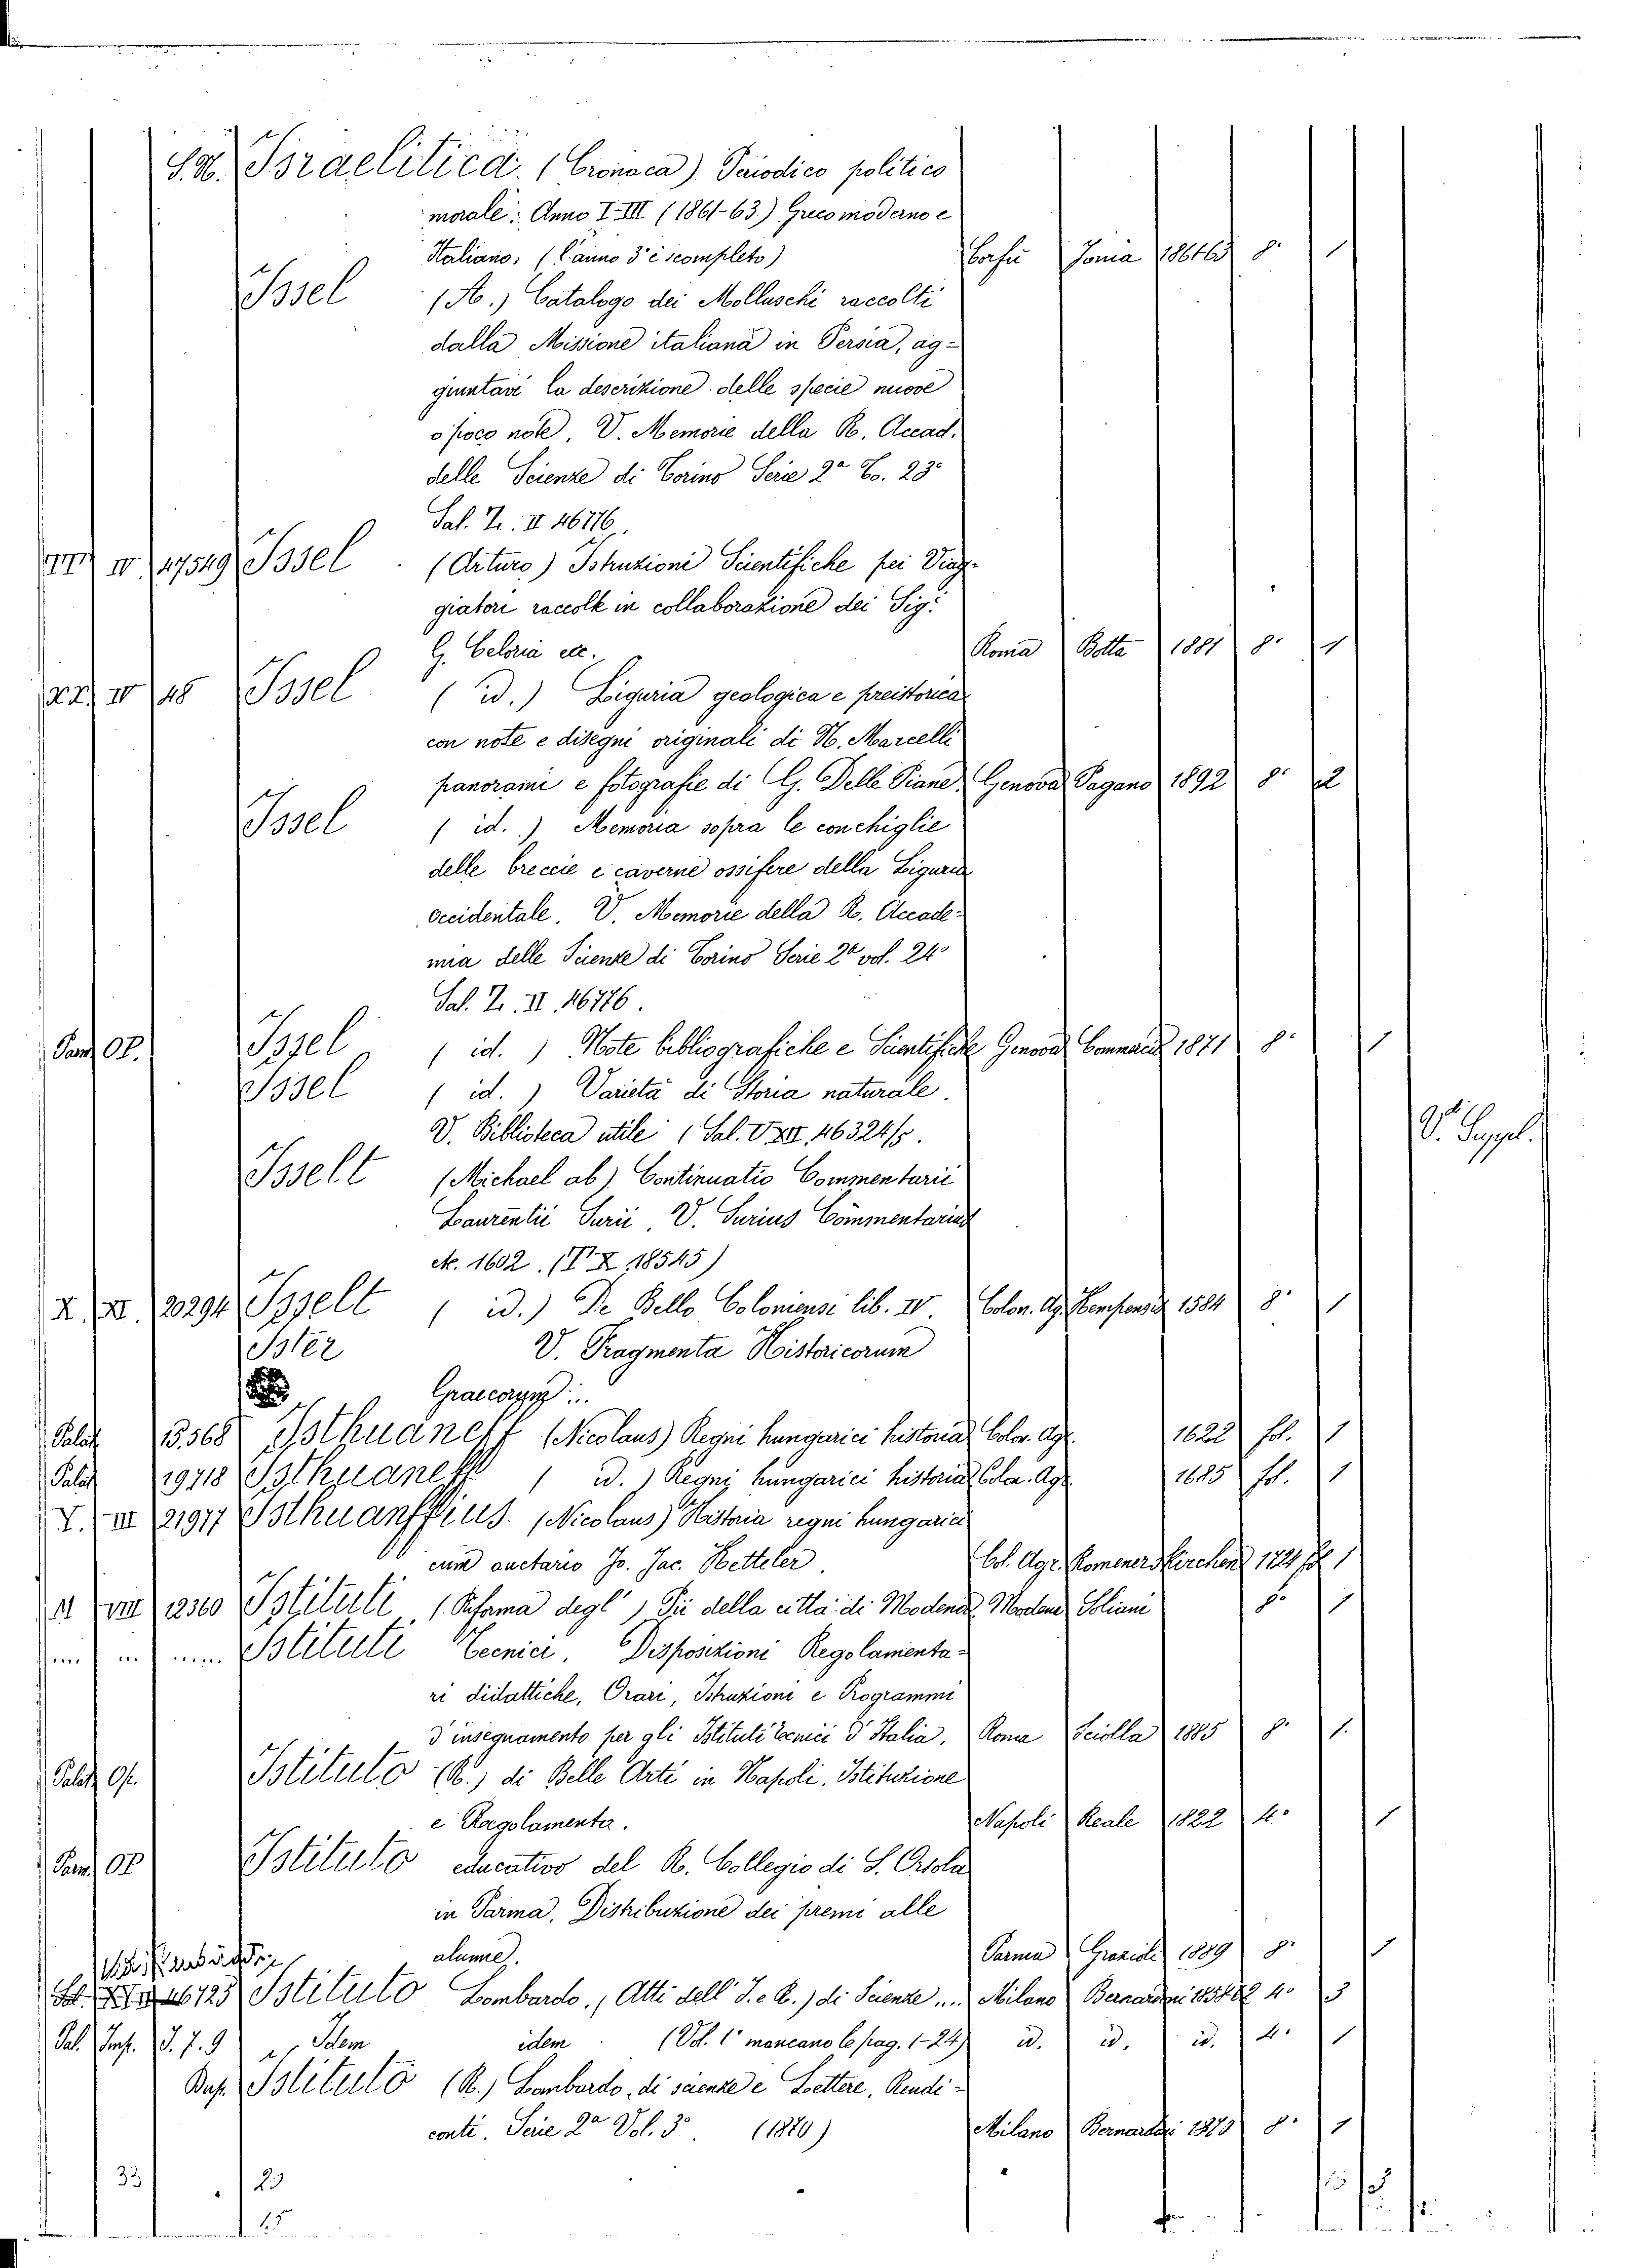 S.N. Israelitica. (Cronaca) Periodico politico
morale: Anno I-III (1861-63.) Greco moderno e
Italiano, (l'anno 3° è scompleto) Corfu Jonia 1861 63 8° 1
Issel (A.) Catalogo dei Molluschi raccolti
dalla Missione italiana in Persia, ag-
giuntavi la descrizione delle specie nuove
o poco note, V. Memorie della R. Accad.
delle Scienze di Torino Serie 2a To. 23°
Sal. Z. II 46776.
IV 17549 Issel (Arturo) Istruzioni Scientifiche pei Viag-
giatori raccolte in collaborazione dei Sig.i
G. Celoria etc. Roma Botta 1881 8° 1
XX. IV 48 Issel (id.) Liguria geologica e preistorica
con note e disegni originali di N. Marcelli
panorami e fotografie di G. Delle Piane. Genova Pagano 1892 8° 2
Issel (id.) Memoria sopra le conchiglie
delle breccie e caverne ossifere della Liguria
occidentale. V. Memorie della R. Accade-
mia delle Scienze di Torino Serie 2a vol. 24°
Sal. Z. II. 46776.
Pam OP. Issel (id.) Note bibliografiche e Scientifiche Genova Commercio 1871 8° 1
Issel (id.) Varietà di Storia naturale.
V. Biblioteca utile (Sal. V XII, 46324/5.
V. Suppl.
Isselt (Michael ab) Continuatio Commentarii
Laurentii Surii, V. Surius Commentarius
etc. 1602. (T X 18545)
X. XI. 20294 Isselt (id.) De Bello Coloniensi lib. IV Colon. Ag. Kempensis 1584 8° 1
Ister V. Fragmenta Historicorum
Graecorum...
Palat 13.568 Isthuaneff (Nicolaus) Regni hungarici historia Color. Agr. 1622 fol. 1
Palat 19718 Isthuaneff (id.) Regni hungarici historia Color. Agr. 1685 fol. 1
V. III 21977 Isthuanffius. (Nicolaus) Historia regni hungarici
cum auctario Jo. Jac. Ketteler. Col. Agr. Romenerskirchen 1724 fol 1
11 VIII 12360 Istituti (Riforma degl') Pii della città di Modena Modena Soliani 8° 1
Istituti Tecnici. Disposizioni Regolamenta-
ri didattiche, Orari, Istruzioni e Programmi
d'insegnamento per gli Istituti tecnici d'Italia. Roma Sciolla 1885 8° 1.
Palat. Op. Istituto (R.) di Belle Arti in Napoli. Istituzione
e Regolamento. Napoli Reale 1822 4° 1
Parm. OP Istituto educativo del R. Collegio di S. Orsola
in Parma. Distribuzione dei premi alle
alunne. Parma Grazioli 1889 8° 1
46725 Istituto Lombardo. (Atti dell' I. e R.) di Scienze ... Milano Bernardoni 1858 62 4° 3
Pal. Imp. J. 7. 9 Idem idem (Vol. 1° mancano le pag. 1-24) id. id. id. 4° 1
Dup. Istituto (R.) Lombardo, di scienze e Lettere, Rendi-
conti. Serie 2a Vol. 3° (1870) Milano Bernardoni 1870 8° 1
33 23
15